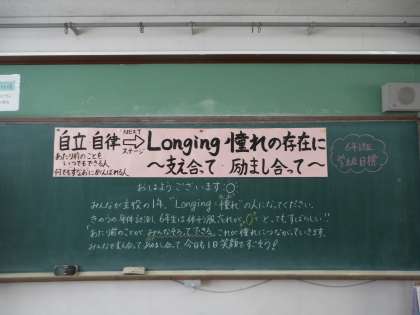 "自立 自律"
あたり前のことを
いつでもできる人
何でもすなおにがんばれる人
NEXT
ステージ
Longing 憧れの存在に
～支え合って 励まし合って～
6年1組
学級目標
おはようございます。
みんなが主役の1年。"Longing・憧れ"の人になってください。
きのうの身体計測、6年生は体そう服だれが とってもすばらしい!!
あたり前のことが、みんなそろってできる。これが憧れにつながっていきます。
みんなで支え合ってはげまし合って 今日も1日笑顔ですごそう!